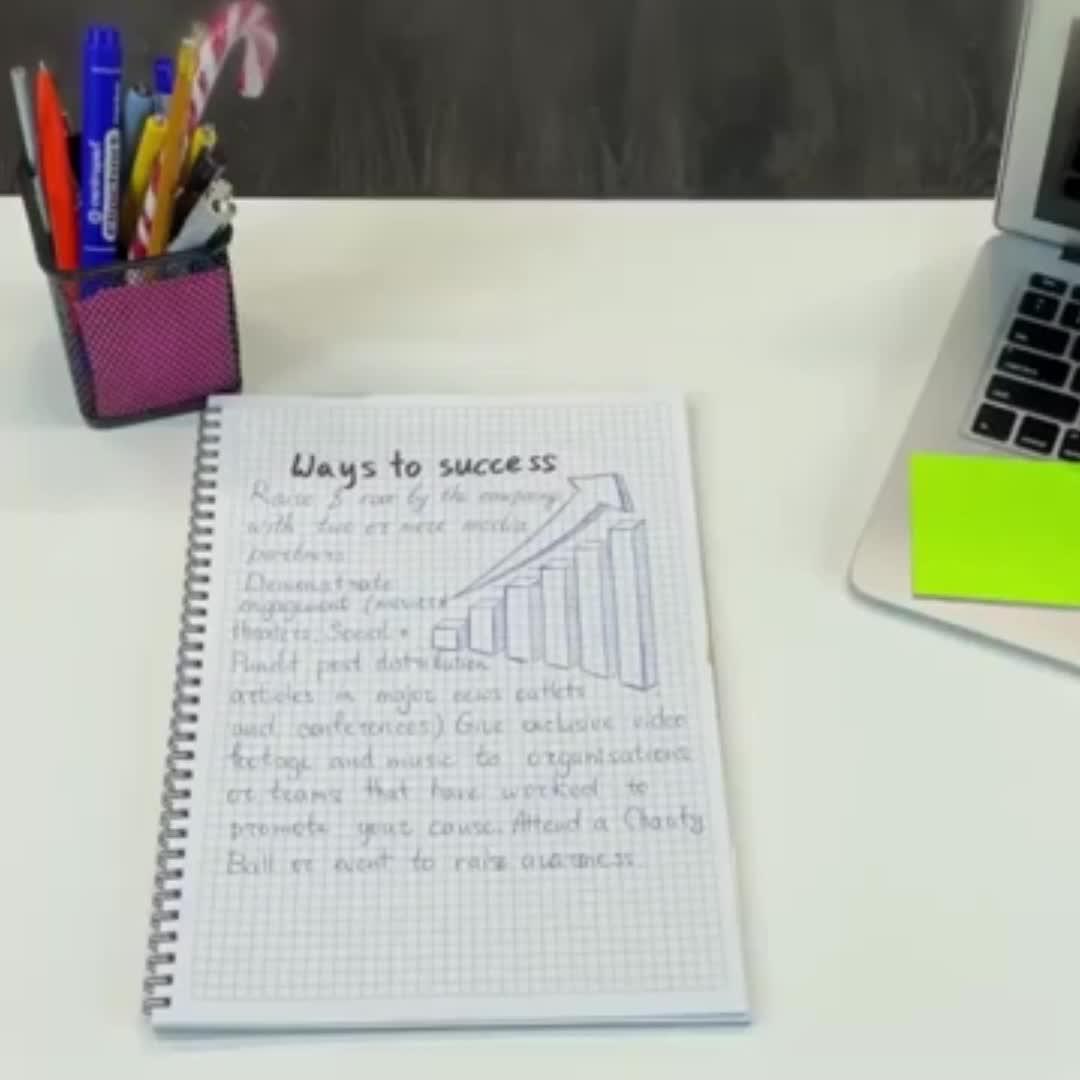 Ways to success
Raise $ by the company
with two or more media
partners
Demonstrate
engagement (movies
theaters, Social +
post distribution
articles in major news outlets
and conferences) Give exclusive video
footage and music to organisations
or teams that have worked to
promote your cause. Attend a Charity
Ball or event to raise awarness.